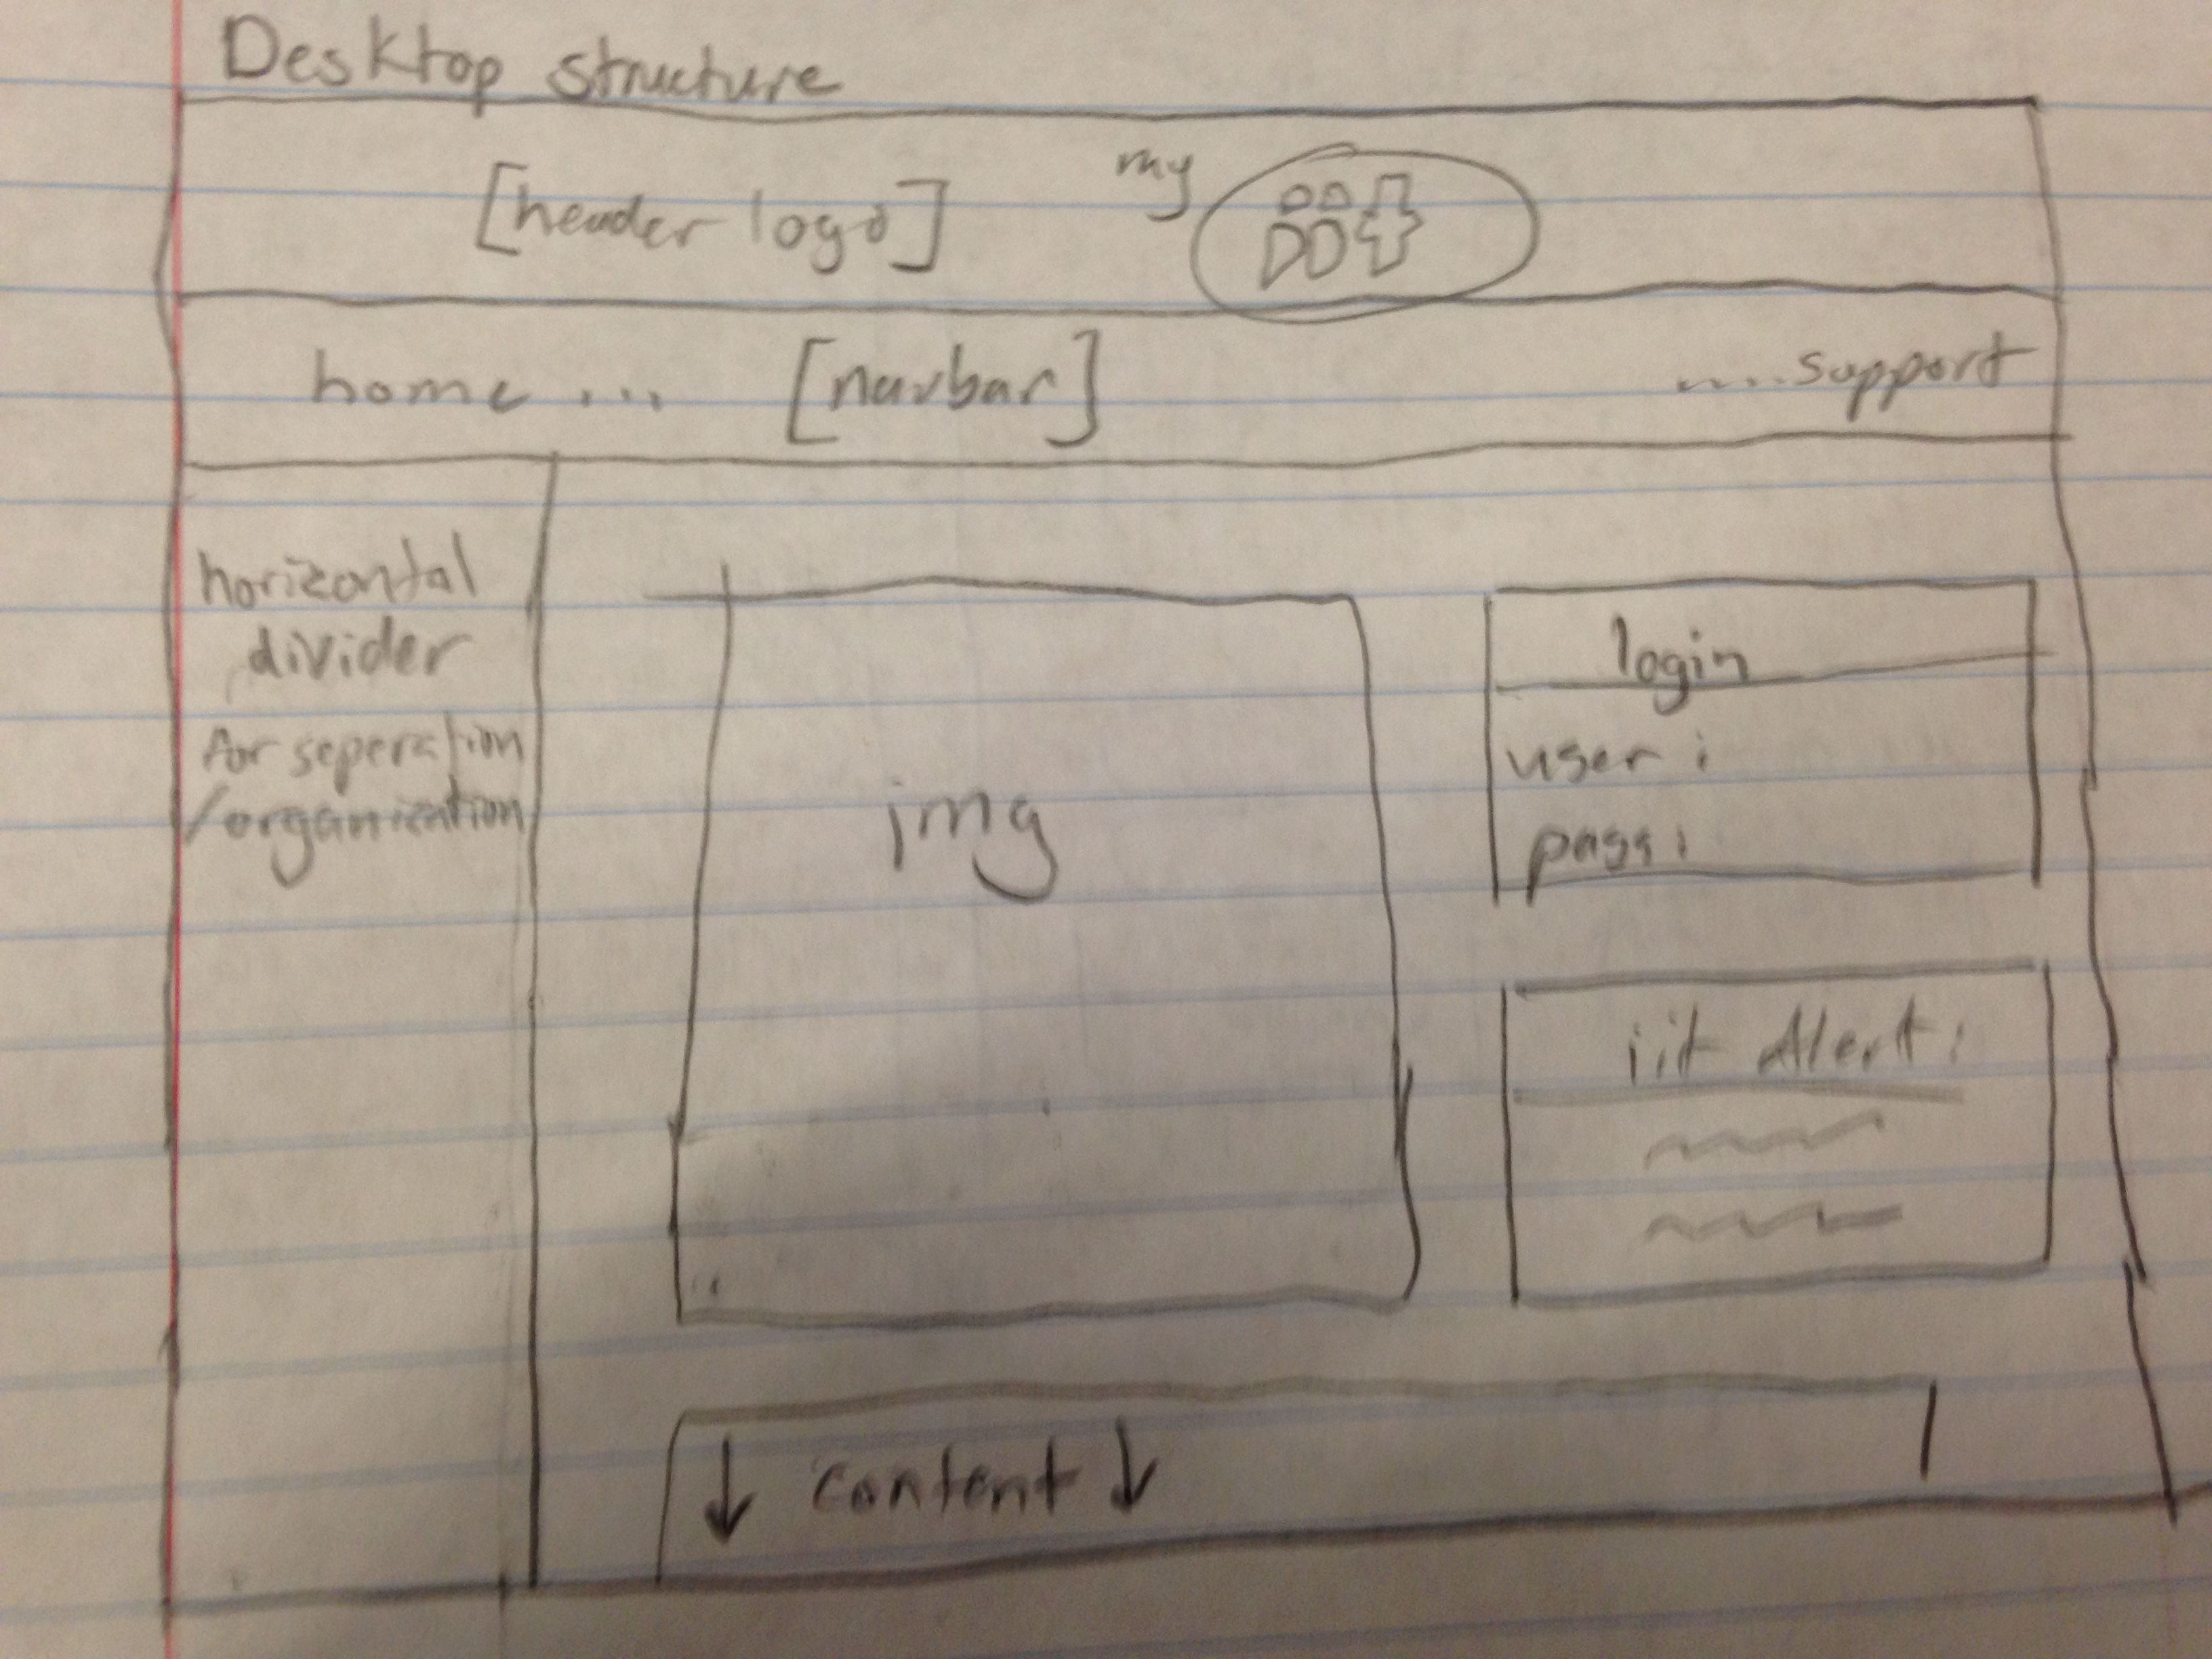 Desktop structure
[header logo]
my
home....
[navbar]
....support
horizontal
divider
for seperation
/organization
img
login
user:
pass:
iit Alert:
↓ content ↓